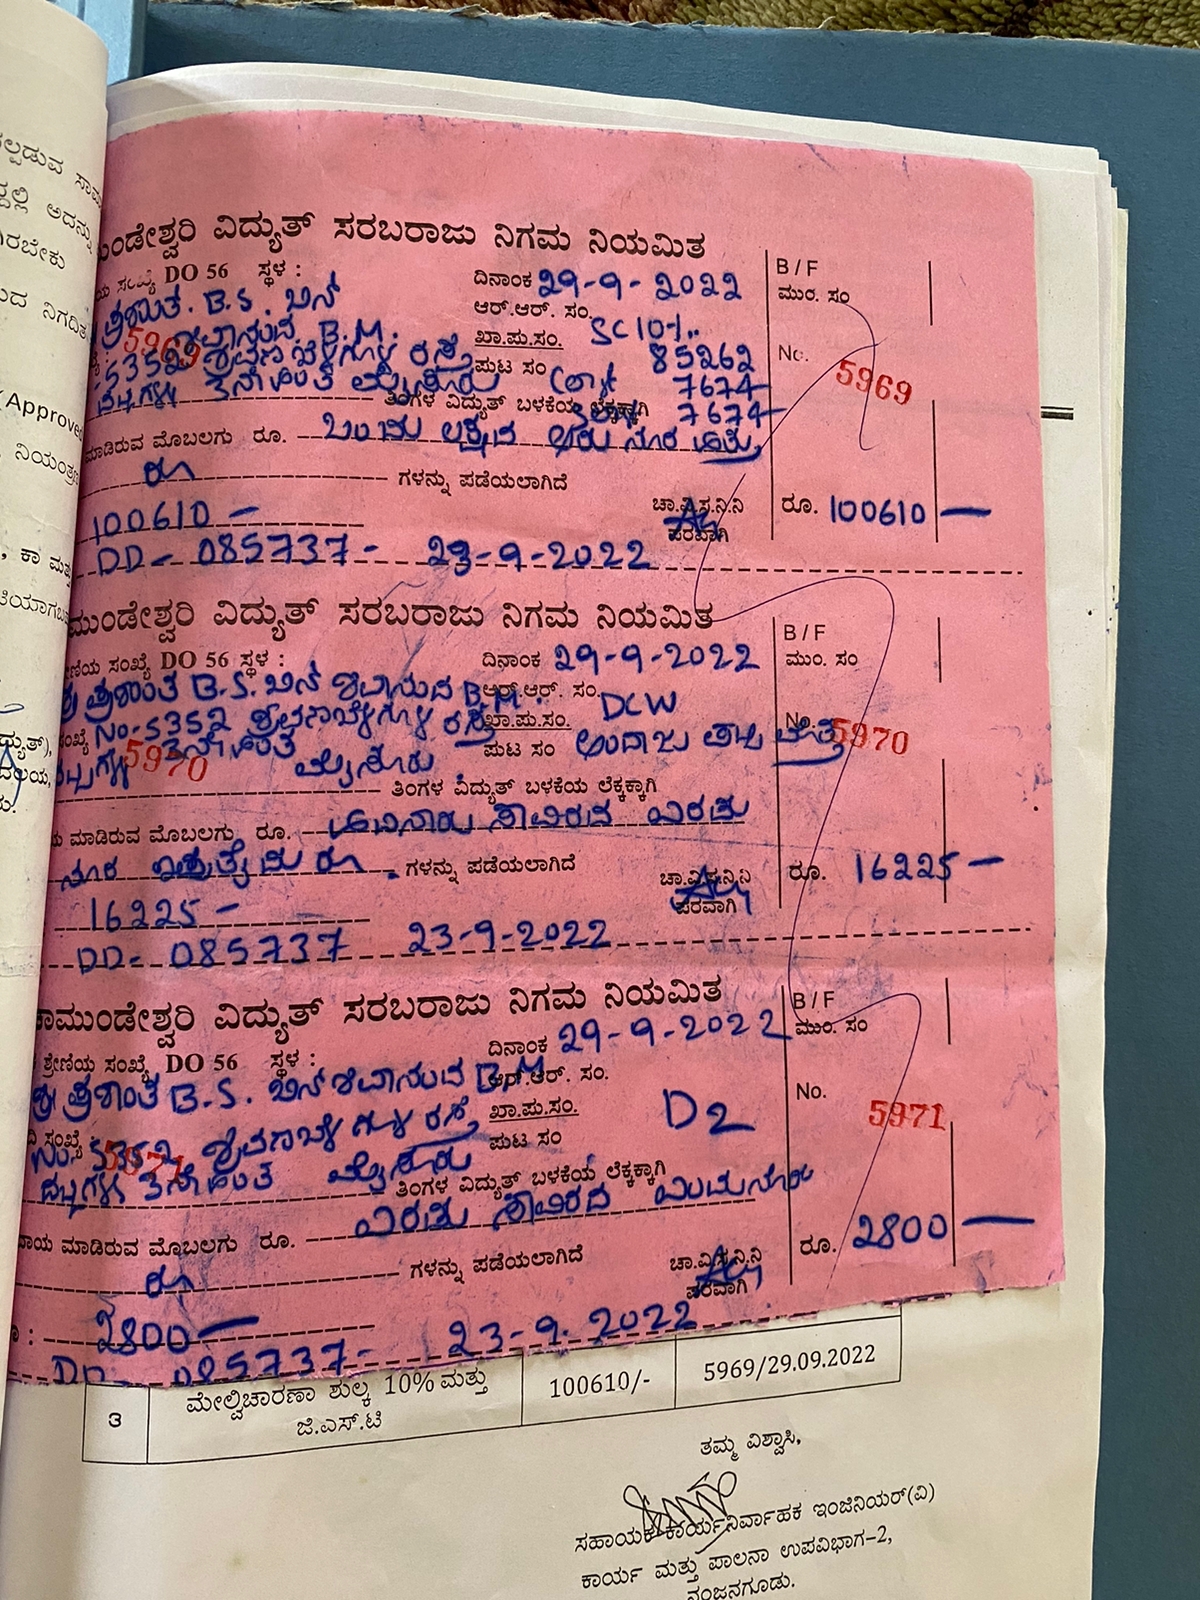 ಲ್ಪಡುವ
ದ್ದಲ್ಲಿ ಅದನ್ನು
ಗಿರಬೇಕು
ನಿಗದಿತ
(Approved
ನಿಯಂತ್ರಣ
ಮುಂಡೇಶ್ವರಿ ವಿದ್ಯುತ್ ಸರಬರಾಜು ನಿಗಮ ನಿಯಮಿತ
ಯ ಸಂಖ್ಯೆ DO 56 ಸ್ಥಳ :
ದಿನಾಂಕ 29-9-2022
B / F
ಮುಂ. ಸಂ
B.S. ಬಿನ್
ಆರ್.ಆರ್. ಸಂ.
B.M.
ಖಾ.ಪು.ಸಂ. SC 10%
No. 5969
5969
5352 ಶ್ರವಣಬೆಳಗೊಳ ರಸ್ತೆ
ಪುಟ ಸಂ 85262
3ನೇ ಹಂತ ಮೈಸೂರು
7674
ತಿಂಗಳ ವಿದ್ಯುತ್ ಬಳಕೆಯ ಲೆಕ್ಕಕ್ಕಾಗಿ
7674
ಮಾಡಿರುವ ಮೊಬಲಗು ರೂ. ಒಂದು ಲಕ್ಷದ ಆರು ನೂರ ಹತ್ತು
ರೂ ಗಳನ್ನು ಪಡೆಯಲಾಗಿದೆ
100610 —
ಚಾ.ವಿ.ಸ.ನಿ.ನಿ
ಪರವಾಗಿ
ರೂ. 100610 —
DD- 085737- 23-9-2022
ಮುಂಡೇಶ್ವರಿ ವಿದ್ಯುತ್ ಸರಬರಾಜು ನಿಗಮ ನಿಯಮಿತ
ಶ್ರೇಣಿಯ ಸಂಖ್ಯೆ DO 56 ಸ್ಥಳ :
ದಿನಾಂಕ 29-9-2022
B / F
ಮುಂ. ಸಂ
ಶ್ರೀ ಪ್ರಶಾಂತ B.S. ಬಿನ್ ಶಿವಾನಂದ B.M.
ಆರ್.ಆರ್. ಸಂ.
No-5352 ಶ್ರವಣಬೆಳಗೊಳ ರಸ್ತೆ
ಖಾ.ಪು.ಸಂ. DCW
No. 5970
5970
3ನೇ ಹಂತ ಮೈಸೂರು
ಪುಟ ಸಂ ಅಂದಾಜು ಪಟ್ಟಿ ವೆಚ್ಚ
ತಿಂಗಳ ವಿದ್ಯುತ್ ಬಳಕೆಯ ಲೆಕ್ಕಕ್ಕಾಗಿ
ಮಾಡಿರುವ ಮೊಬಲಗು ರೂ. ಹದಿನಾರು ಸಾವಿರದ ಎರಡು
ನೂರ ಇಪ್ಪತ್ತೈದು ರೂ ಗಳನ್ನು ಪಡೆಯಲಾಗಿದೆ
16225 —
ಚಾ.ವಿ.ಸ.ನಿ.ನಿ
ಪರವಾಗಿ
ರೂ. 16225 —
DD- 085737 23-9-2022
ಾಮುಂಡೇಶ್ವರಿ ವಿದ್ಯುತ್ ಸರಬರಾಜು ನಿಗಮ ನಿಯಮಿತ
ಶ್ರೇಣಿಯ ಸಂಖ್ಯೆ DO 56 ಸ್ಥಳ :
ದಿನಾಂಕ 29-9-2022
B / F
ಮುಂ. ಸಂ
ಶ್ರೀ ಪ್ರಶಾಂತ B.S. ಬಿನ್ ಶಿವಾನಂದ B.M
ಆರ್.ಆರ್. ಸಂ.
ಖಾ.ಪು.ಸಂ. D2
No. 5971
5971
ಸಂಖ್ಯೆ 5352 ಶ್ರವಣಬೆಳಗೊಳ ರಸ್ತೆ
ಪುಟ ಸಂ
3ನೇ ಹಂತ ಮೈಸೂರು
ತಿಂಗಳ ವಿದ್ಯುತ್ ಬಳಕೆಯ ಲೆಕ್ಕಕ್ಕಾಗಿ
ದಾಯ ಮಾಡಿರುವ ಮೊಬಲಗು ರೂ. ಎರಡು ಸಾವಿರದ ಎಂಟುನೂರು
ರೂ ಗಳನ್ನು ಪಡೆಯಲಾಗಿದೆ
2800 —
ಚಾ.ವಿ.ಸ.ನಿ.ನಿ
ಪರವಾಗಿ
ರೂ. 2800 —
DD- 085737- 23-9-2022
3 ಮೇಲ್ವಿಚಾರಣಾ ಶುಲ್ಕ 10% ಮತ್ತು ಜಿ.ಎಸ್.ಟಿ 100610/- 5969/29.09.2022
ತಮ್ಮ ವಿಶ್ವಾಸಿ,
ಸಹಾಯಕ ಕಾರ್ಯನಿರ್ವಾಹಕ ಇಂಜಿನಿಯರ್(ವಿ)
ಕಾರ್ಯ ಮತ್ತು ಪಾಲನಾ ಉಪವಿಭಾಗ-2,
ನಂಜನಗೂಡು.